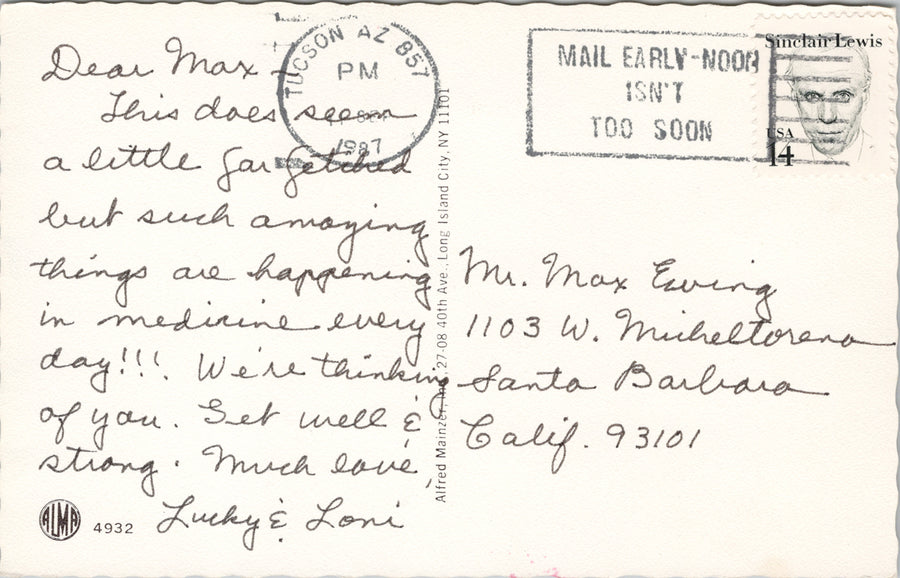 Dear Max –
This does seem
a little far fetched
but such amazing
things are happening
in medicine every
day!!! We're thinking
of you. Get well &
strong. Much love,
Lucky & Loni
ALMA 4932
Alfred Mainzer, Inc., 27-08 40th Ave., Long Island City, NY 11101
TUCSON AZ 857
PM
1987
MAIL EARLY-NOON
ISN'T
TOO SOON
Sinclair Lewis
USA
14
Mr. Max Ewing
1103 W. Micheltorena
Santa Barbara
Calif. 93101